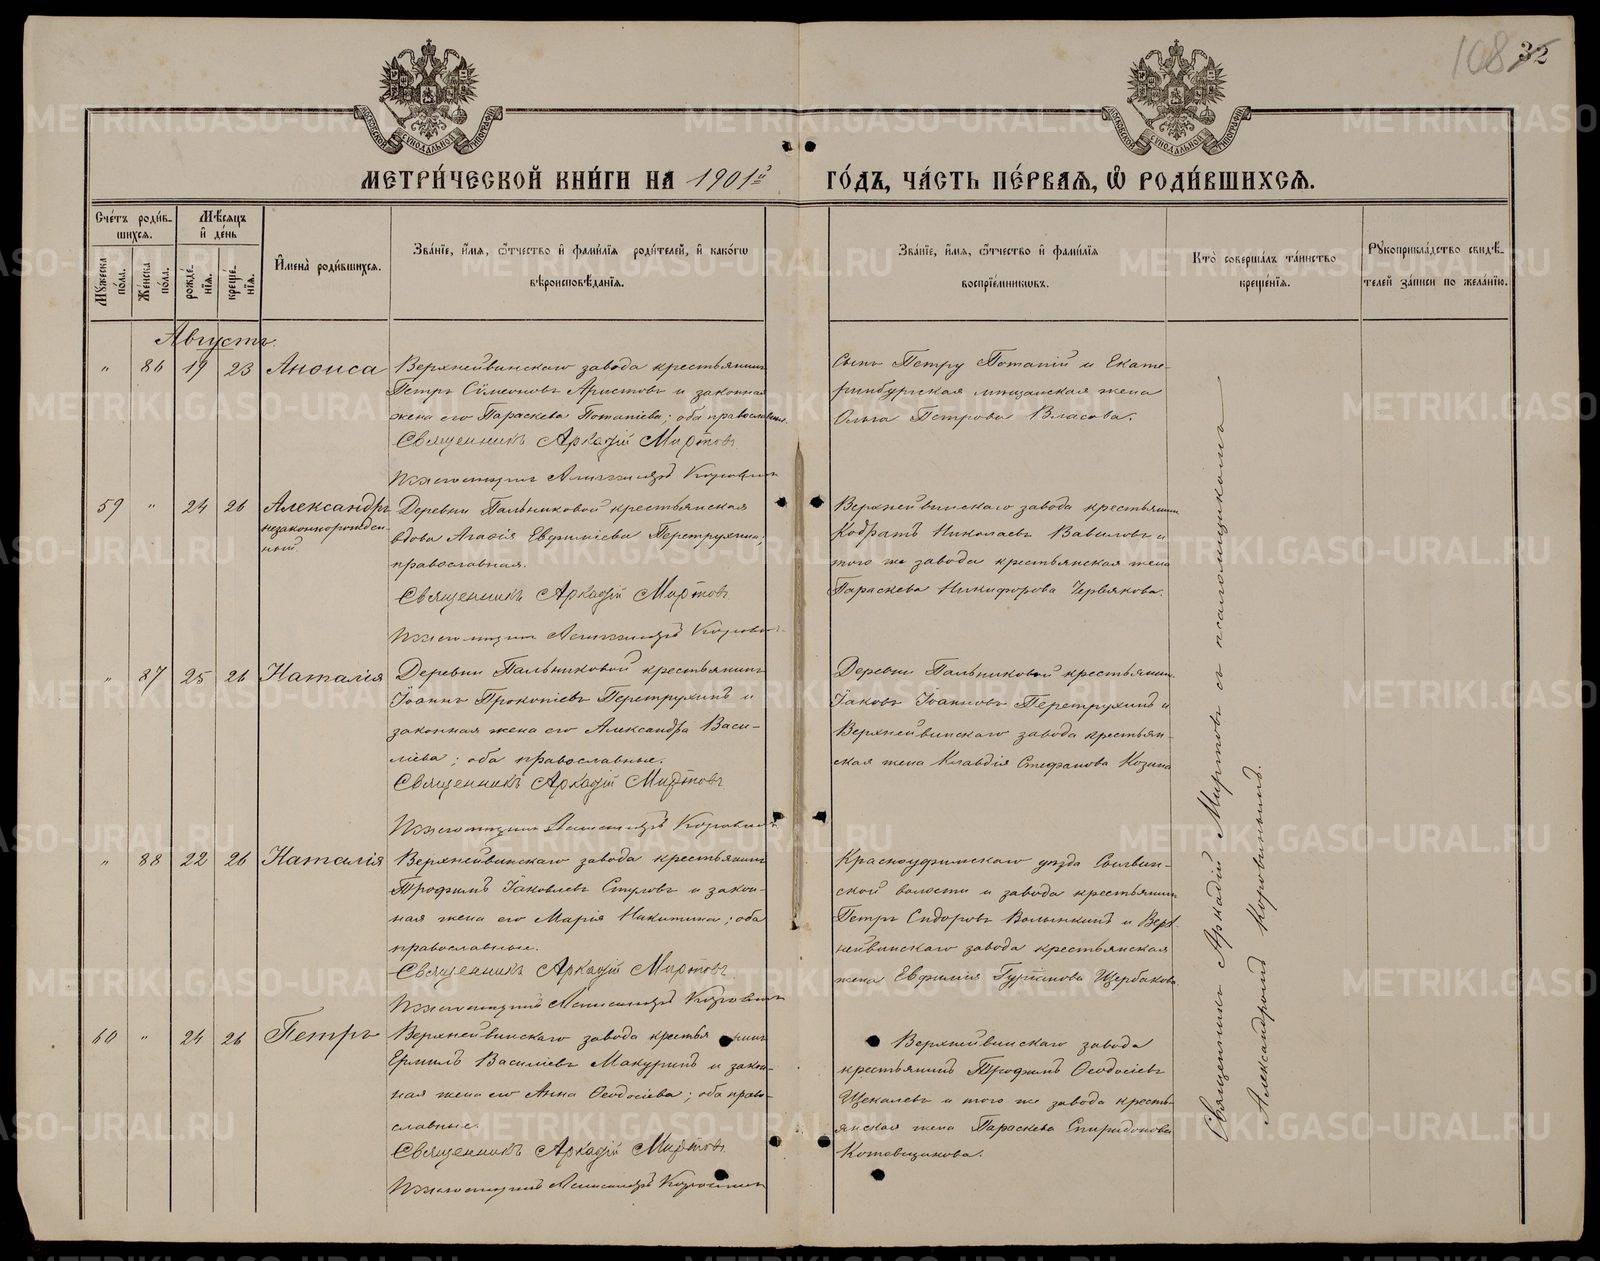 108 32
МЕТРИ́ЧЕСКОЙ КНИ́ГИ НА 1901й ГО́ДЪ, ЧА́СТЬ ПЕ́РВАѦ, Ѡ҆ РОДИ́ВШИХСѦ.
Сче́тъ роди́в-
шихсѧ.
Мѣ́сѧцъ
и҆ де́нь
Мꙋ́жеска
по́ла.
Же́нска
по́ла.
рожде́-
нїѧ.
креще́-
нїѧ.
И҆мена̀ роди́вшихсѧ.
Зва́нїе, и҆́мѧ, ѻ҆́тчество и҆ фами́лїѧ роди́телей, и҆ како́гѡ
вѣроисповѣ́данїѧ.
Зва́нїе, и҆́мѧ, ѻ҆́тчество и҆ фами́лїѧ
воспрїе́мникѡвъ.
Кто̀ соверша́лъ та́инство
креще́нїѧ.
Рꙋкоприкла́дство свидѣ́-
телей за́писи по жела́нїю.
Августъ.
" 86 19 23 Анѳиса
Верхнейвинскаго завода крестьянинъ
Петръ Сѵмеоновъ Аристовъ и законная
жена его Параскева Потапіева; оба православные.
Священникъ Аркадій Миртовъ
Псаломщикъ Александръ Коровинъ
Сынъ Петру Потапій и Екате-
ринбургская мѣщанская жена
Ольга Петрова Власова.
59 " 24 26 Александръ
незаконнорожден-
ный.
Деревни Пальниковой крестьянская
вдова Агафія Евфиміева Перетрухина,
православная.
Священникъ Аркадій Миртовъ
Псаломщикъ Александръ Коровинъ
Верхнейвинскаго завода крестьянинъ
Кодратъ Николаевъ Вавиловъ и
того же завода крестьянская жена
Параскева Никифорова Червякова.
" 87 25 26 Наталія
Деревни Пальниковой крестьянинъ
Іоаннъ Прокопіевъ Перетрухинъ и
законная жена его Александра Васи-
ліева; оба православные.
Священникъ Аркадій Миртовъ
Псаломщикъ Александръ Коровинъ
Деревни Пальниковой крестьянинъ
Іаковъ Іоанновъ Перетрухинъ и
Верхнейвинскаго завода крестьян-
ская жена Клавдія Стефанова Козина
" 88 22 26 Наталія
Верхнейвинскаго завода крестьянинъ
Трофимъ Іаковлевъ Стуловъ и закон-
ная жена его Марія Никитина; оба
православные.
Священникъ Аркадій Миртовъ
Псаломщикъ Александръ Коровинъ
Красноуфимскаго уѣзда Сылвин-
ской волости и завода крестьянинъ
Петръ Сидоровъ Волынкинъ и Верх-
нейвинскаго завода крестьянская
жена Евфимія Щербакова
60 " 24 26 Петръ
Верхнейвинскаго завода крестьянинъ
Ермилъ Василіевъ Макуринъ и закон-
ная жена его Анна Ѳеодосіева; оба право-
славные.
Священникъ Аркадій Миртовъ
Псаломщикъ Александръ Коровинъ
Верхнейвинскаго завода
крестьянинъ Трофимъ Ѳеодосіевъ
Щекалевъ и того же завода кресть-
янская жена Параскева Спиридонова
Котовщикова.
Священникъ Аркадій Миртовъ съ псаломщикомъ
Александромъ Коровинымъ.